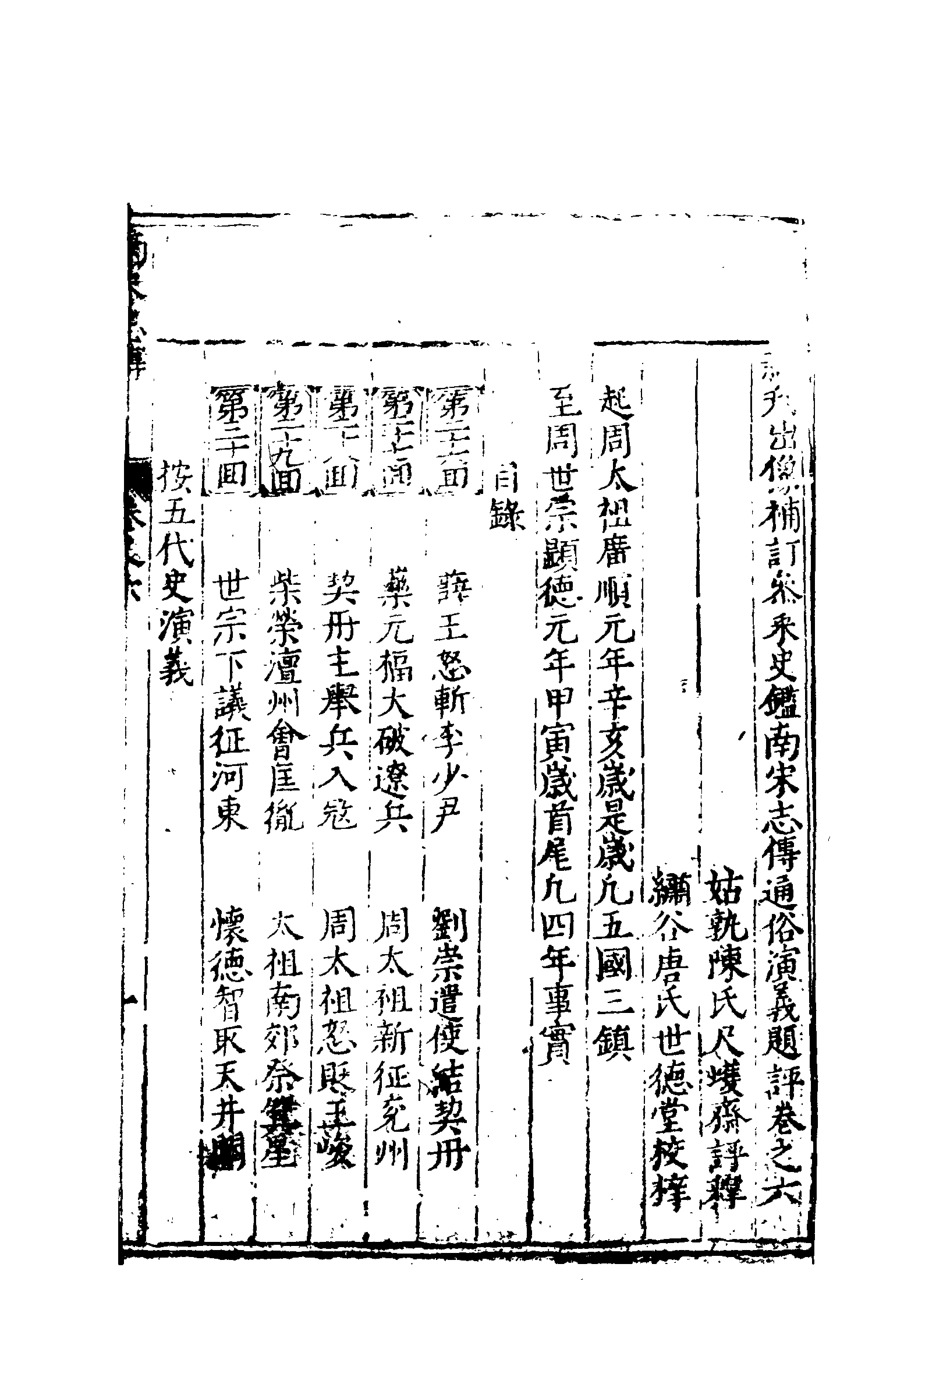 新刋出像補訂參采史鑑南宋志傳通俗演義題評卷之六
姑孰陳氏尺蠖齋評釋
繡谷唐氏世德堂校梓
起周太祖廣順元年辛亥歲是歲凢五國三鎮
至周世宗顕德元年甲寅歲首尾凢四年事實
目錄
第二十六回 薛王怒斬李少尹 劉崇遣使結契丹
第二十七回 藥元福大破遼兵 周太祖新征兖州
第二十八回 契丹主舉兵入宼 周太祖怒貶王峻
第二十九回 柴榮澶州會匡胤 太祖南郊祭
第三十回 世宗下議征河東 懷德智取天井関
按五代史演義
南宋志傳
卷之六
一